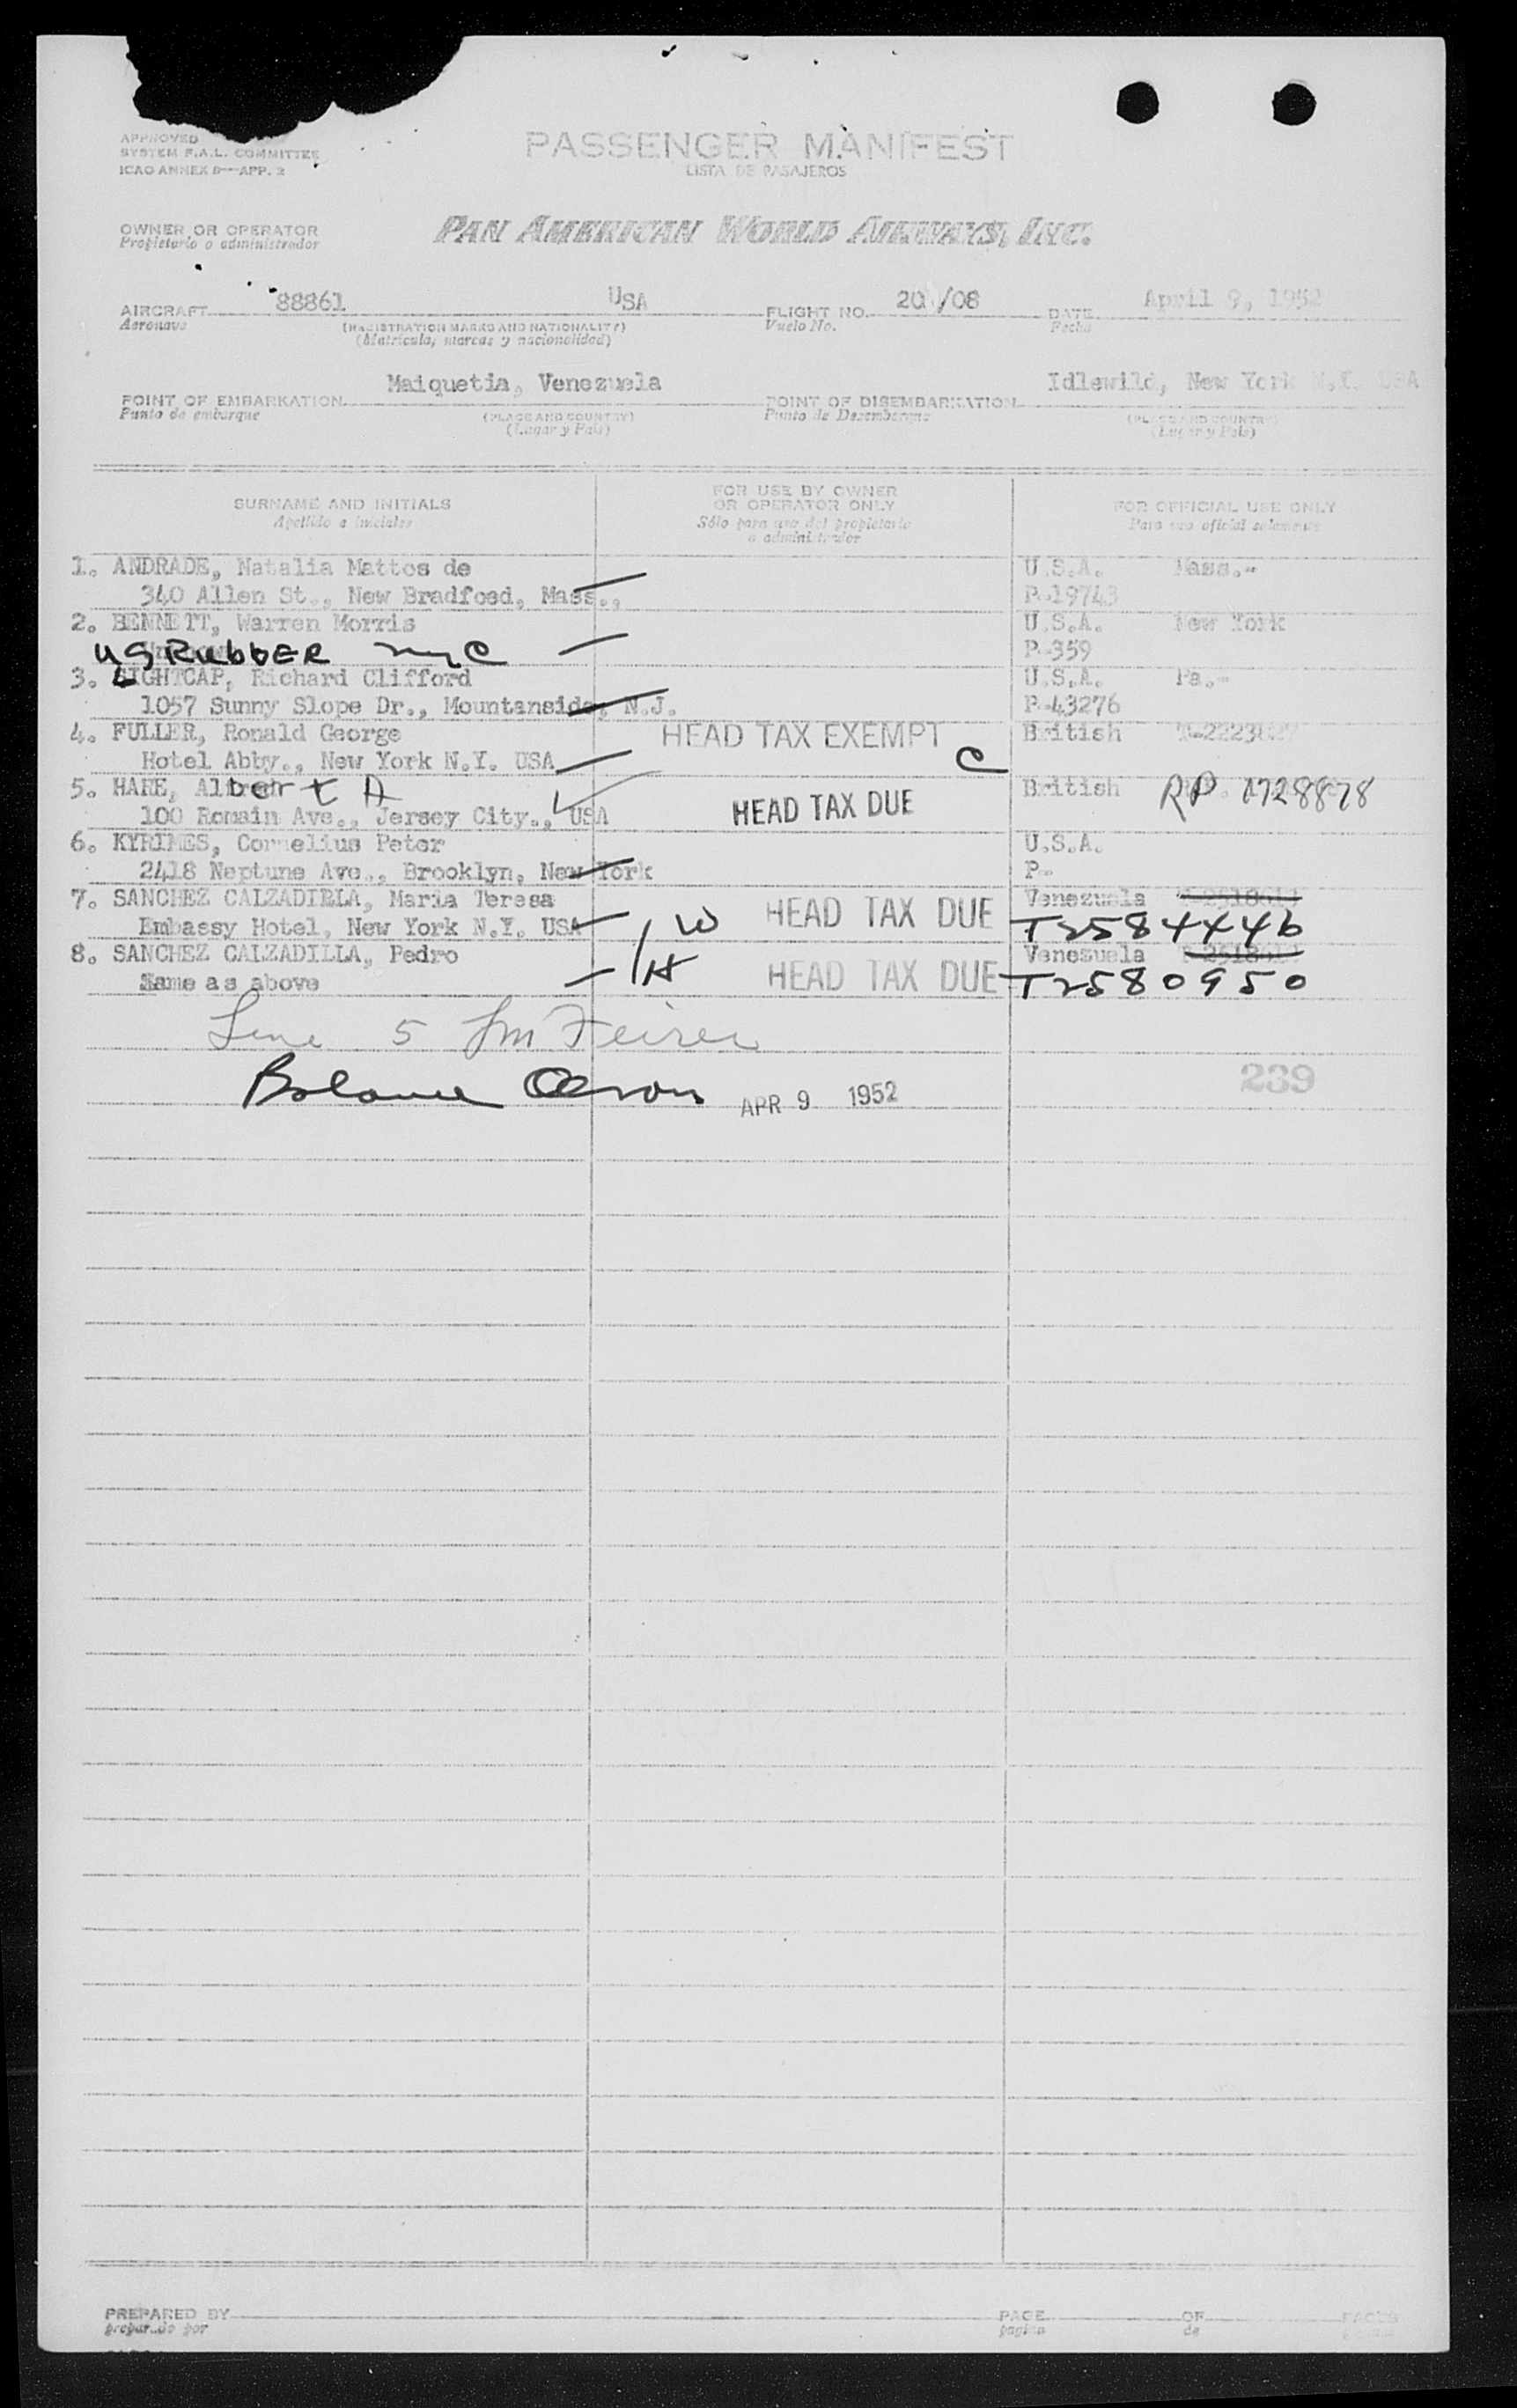 APPROVED
SYSTEM F.A.L. COMMITTEE
ICAO ANNEX 9—APP. 2
PASSENGER MANIFEST
LISTA DE PASAJEROS
OWNER OR OPERATOR
Propietario o administrador
PAN AMERICAN WORLD AIRWAYS, INC.
AIRCRAFT 88861 USA FLIGHT NO. 20 /08 DATE April 9, 1952
Aeronave (REGISTRATION MARKS AND NATIONALITY) Vuelo No. Fecha
(Matricula, marcas y nacionalidad)
POINT OF EMBARKATION Maiquetia, Venezuela POINT OF DISEMBARKATION Idlewild, New York N.Y. USA
Punto de embarque (PLACE AND COUNTRY) Punto de Desembarque (PLACE AND COUNTRY)
(Lugar y Pais) (Lugar y Pais)
SURNAME AND INITIALS
Apellido e iniciales
FOR USE BY OWNER
OR OPERATOR ONLY
Sólo para uso del propietario
o administrador
FOR OFFICIAL USE ONLY
Para uso oficial solamente
1. ANDRADE, Natalia Mattos de U.S.A. Mass.-
340 Allen St., New Bradfoed, Mass., P-19743
2. BENNETT, Warren Morris U.S.A. New York
US RUBBER nyc P-359
3. LIGHTCAP, Richard Clifford U.S.A. Pa.-
1057 Sunny Slope Dr., Mountanside, N.J. P-43276
4. FULLER, Ronald George HEAD TAX EXEMPT British
Hotel Abby., New York N.Y. USA C
5. HARE, Albert A British RP 1728878
100 Romain Ave., Jersey City., USA HEAD TAX DUE
6. KYRIMES, Cornelius Peter U.S.A.
2418 Neptune Ave., Brooklyn, New York P-
7. SANCHEZ CALZADILLA, Maria Teresa Venezuela
Embassy Hotel, New York N.Y. USA W HEAD TAX DUE T2584446
8. SANCHEZ CALZADILLA, Pedro Venezuela
Same as above H HEAD TAX DUE T2580950
Line 5
Balance APR 9 1952 239
PREPARED BY PAGE OF PAGES
preparado por pagina de